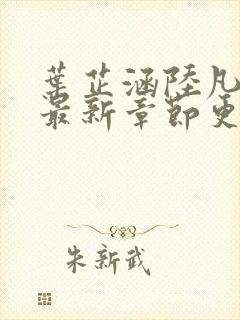 葉芷涵陸凡
最新章節更
朱新武